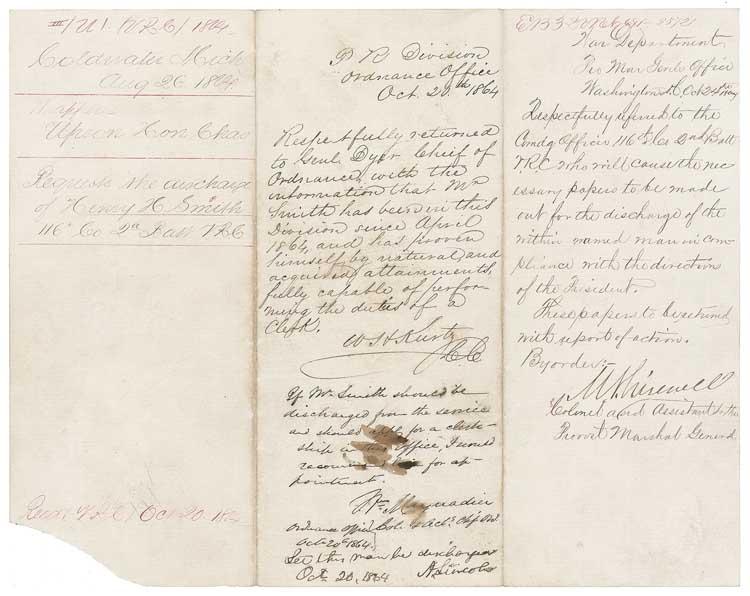 1864
Coldwater Mich
Aug 26 1864
Upson Hon Chas
Requests the discharge
of Henry H. Smith
116" Co 2" Batt VRC
Oct 20
P R Division
Ordnance Office
Oct. 20th 1864
Respectfully returned
to Genl. Dyer Chief of
Ordnance, with the
information that Mr
Smith has been in this
Division since April
1864, and has proven
himself by natural and
acquired attainments,
fully capable of perfor-
ming the duties of a
Clerk.
W H Kurtz
C.C.
If Mr Smith should be
discharged from the service
and should for a clerk-
ship in this Office, I would
for ap-
pointment.
Wm Maynadier
Ordnance Office Col.
Oct 20th 1864
Let this man be discharged
Oct. 20, 1864 A. Lincoln
War Department
Pro Mar Genls Office
Washington Oct 24th
Respectfully referred to the
Comdg Officer 116th Co 2nd Batt
V.R.C. who will cause the nec
essary papers to be made
out for the discharge of the
within named man in com
pliance with the direction
of the President.
These papers to be returned
with report of action.
By order:-
Colonel and Assistant to the
Provost Marshal General